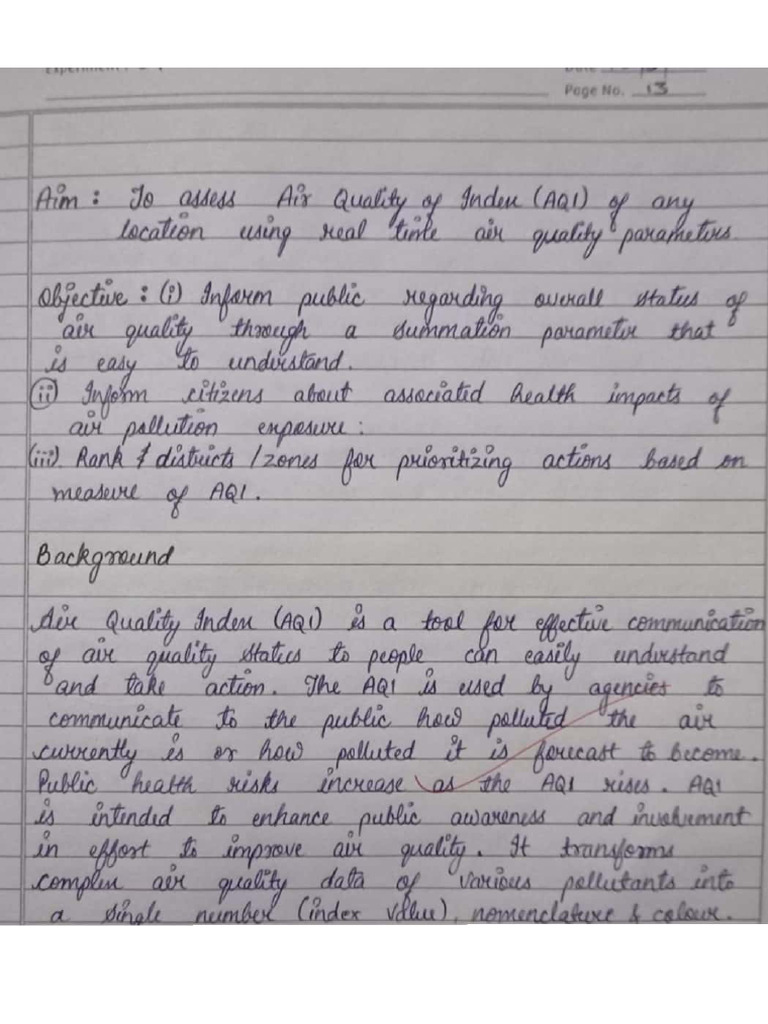 Page No. 13
Aim : To assess Air Quality of Index (AQI) of any
location using real time air quality parameters
Objective : (i) Inform public regarding overall status of
air quality through a summation parameter that
is easy to understand.
(ii) Inform citizens about associated health impacts of
air pollution exposure :
(iii) Rank & districts / zones for prioritizing actions based on
measure of AQI.
Background
Air Quality Index (AQI) is a tool for effective communication
of air quality status to people can easily understand
and take action. The AQI is used by agencies to
communicate to the public how polluted the air
currently is or how polluted it is forecast to become.
Public health risks increase as the AQI rises. AQI
is intended to enhance public awareness and involvement
in effort to improve air quality. It transforms
complex air quality data of various pollutants into
a single number (index value), nomenclature & colour.